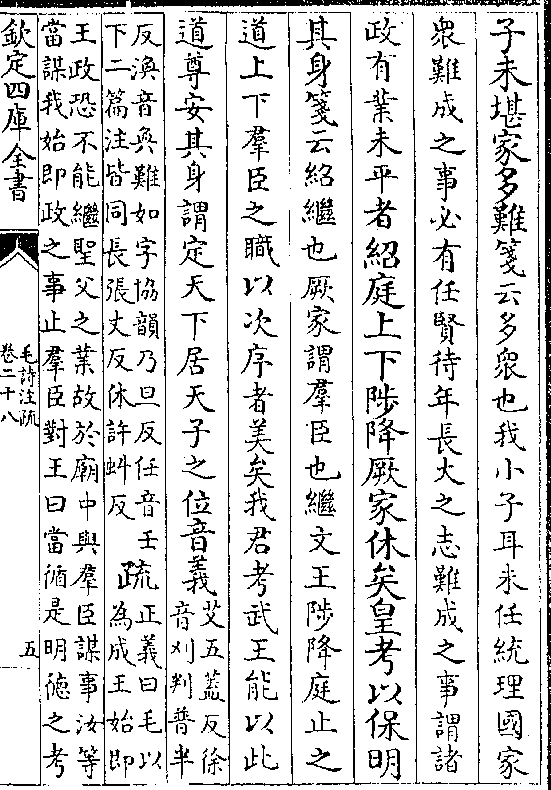 子未堪家多難箋云多衆也我小子耳未任統理國家
衆難成之事必有任賢待年長大之志難成之事謂諸
政有業未平者紹庭上下陟降厥家休矣皇考以保明
其身箋云紹繼也厥家謂羣臣也繼文王陟降庭止之
道上下羣臣之職以次序者美矣我君考武王能以此
道尊安其身謂定天下居天子之位音義
艾五蓋反徐
音刈判普半
反渙音奐難如字協韻乃旦反任音壬
下二篇注皆同長張丈反休許虯反
疏
正義曰毛以
為成王始即
王政恐不能繼聖父之業故於廟中與羣臣謀事汝等
當謀我始即政之事止羣臣對王曰當循是明德之考
欽定四庫全書
毛詩注疏
卷二十八
五